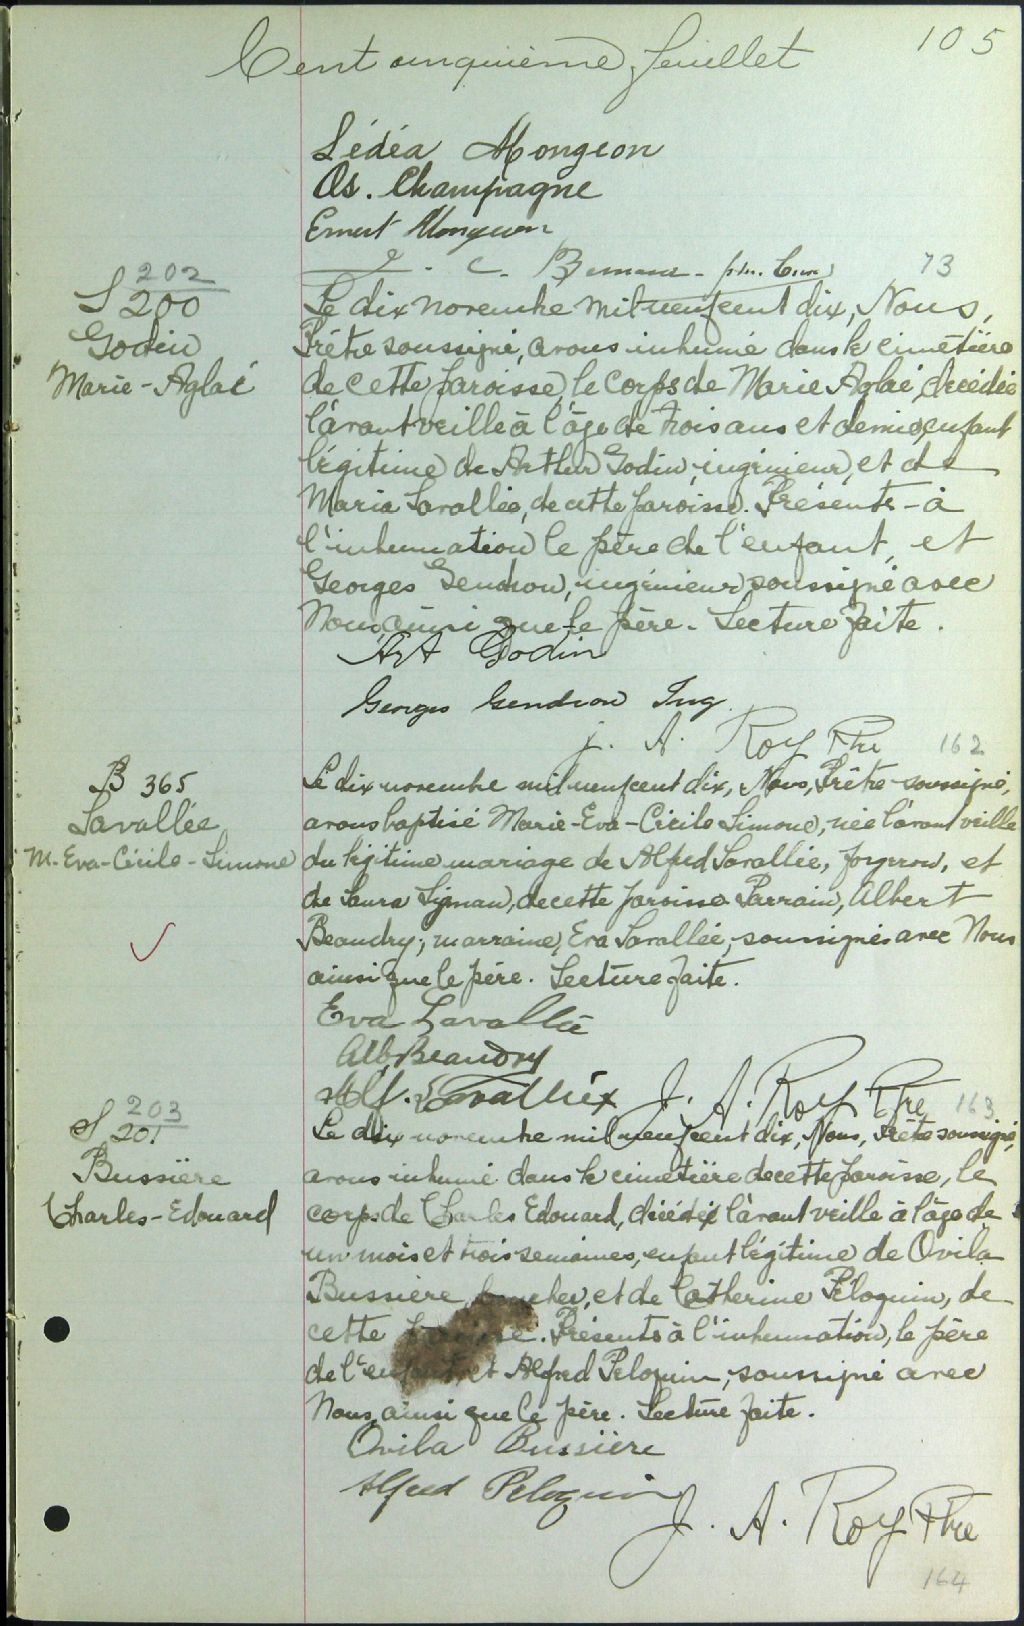 105
Cent cinquième feuillet
Lédéa Mongeon
Os. Champagne
Ernest Mongeon
73
202
S 200
Godin
Marie-Aglaé
Le dix novembre mil neuf cent dix, Nous,
Prêtre soussigné, avons inhumé dans le cimetière
de cette paroisse, le corps de Marie Aglaé, décédée
l'avant veille à l'âge de trois ans et demie, enfant
légitime de Arthur Godin, ingénieur, et de
Maria Lavallée, de cette paroisse. Présents - à
l'inhumation le père de l'enfant, et
Georges Gendron, ingénieur, soussigné avec
Nous, ainsi que le père. Lecture faite.
Art Godin
Georges Gendron Ing.
J. A. Roy Ptre
162
B 365
Lavallée
M. Eva-Cécile-Simone
Le dix novembre mil neuf cent dix, Nous, Prêtre soussigné,
avons baptisé Marie-Eva-Cécile Simone, née l'avant veille
du légitime mariage de Alfred Lavallée, forgeron, et
de Laura, de cette paroisse. Parrain, Albert
Beaudry; marraine, Eva Lavallée, soussignés avec Nous
ainsi que le père. Lecture faite.
Eva Lavallée
Alb. Beaudry
Alf. Lavallée J. A. Roy Ptre
163
203
S 201
Bussière
Charles-Edouard
Le dix novembre mil neuf cent dix, Nous, Prêtre soussigné,
avons inhumé dans le cimetière de cette paroisse, le
corps de Charles Edouard, décédé l'avant veille à l'âge de
un mois et trois semaines, enfant légitime de Ovila
Bussière, boucher, et de Catherine Péloquin, de
cette paroisse. Présents à l'inhumation, le père
de l'enfant, et Alfred Peloquin, soussigné avec
Nous, ainsi que le père. Lecture faite.
Ovila Bussière
Alfred Peloquin
J. A. Roy Ptre
164